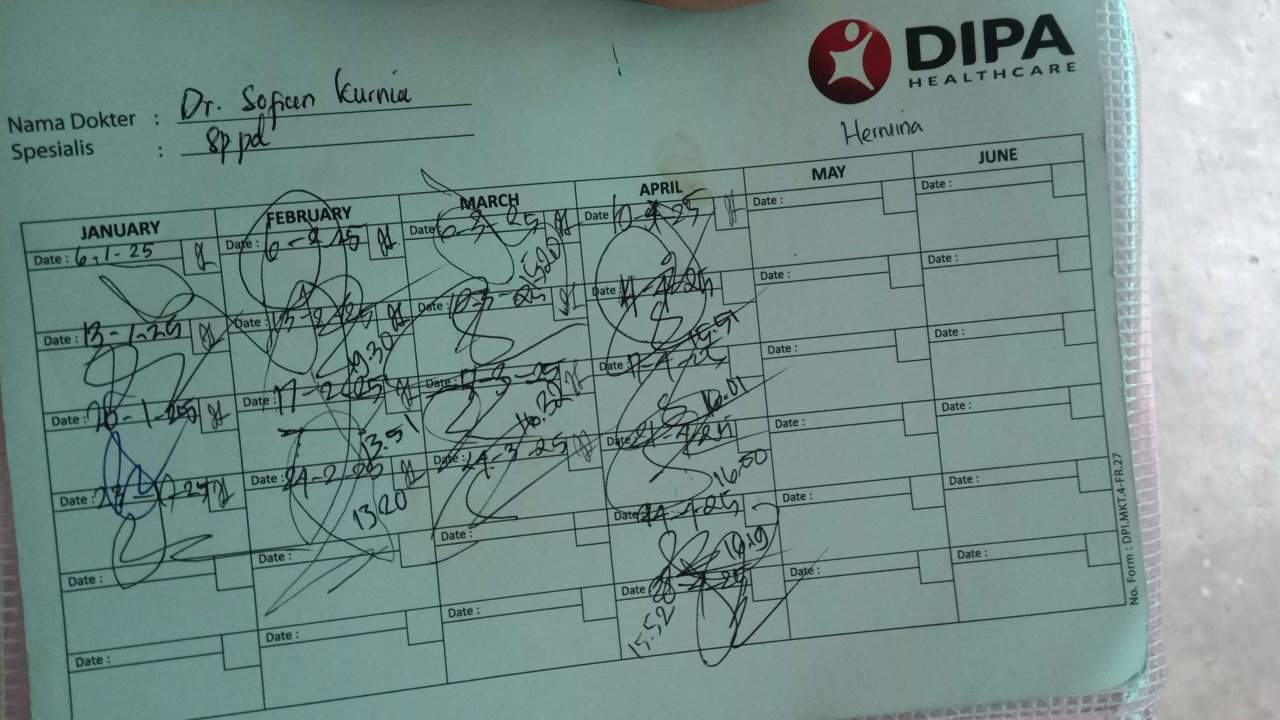 DIPA
HEALTHCARE
Nama Dokter : Dr. Sofian Kurnia
Spesialis : Sp pd
Hernina
JANUARY FEBRUARY MARCH APRIL MAY JUNE
Date : 6-1-25 Date : 6-2-25 Date : 6-3-25 Date : 10-4-25 Date : Date :
15.20
Date : 13-1-25 Date : 13-2-25 Date : 10-3-25 Date : Date : Date :
19.30 15.51
Date : 20-1-25 Date : 17-2-25 Date : 17-3-25 Date : 17-4-25 Date : Date :
13.51 16.32 16.01
Date : Date : 24-2-25 Date : 24-3-25 Date : 21-4-25 Date : Date :
13.20 16.50
Date : Date : Date : Date : 24-4-25 Date : Date :
16.19
Date : Date : Date : Date : 28-4-25 Date : Date :
15.52
No. Form : DPI.MKT.4-FR.27